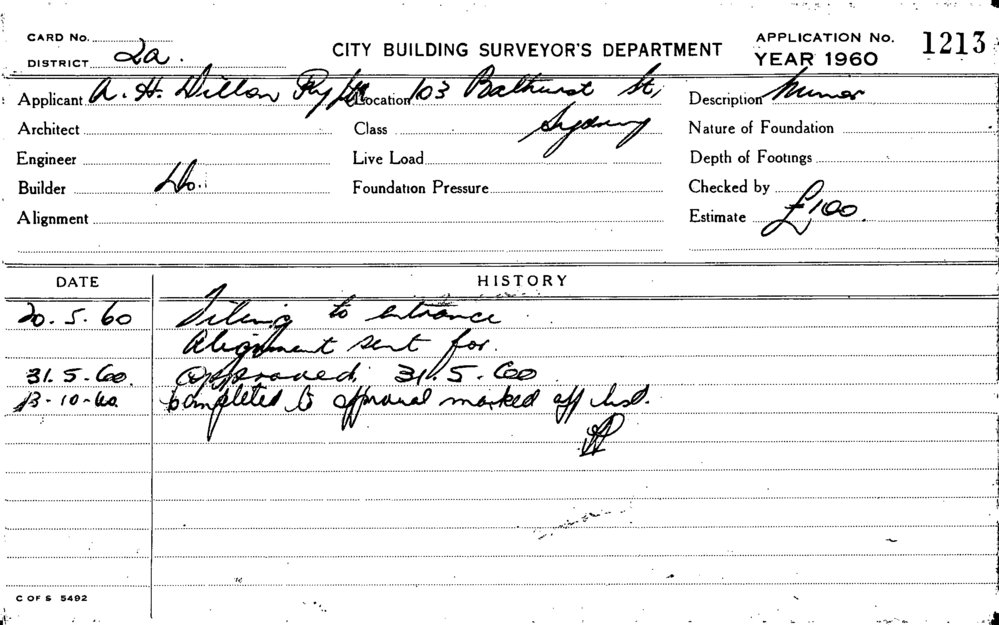 CARD No.
DISTRICT 2a.
CITY BUILDING SURVEYOR'S DEPARTMENT
APPLICATION No. 1213
YEAR 1960
Applicant A. H. Dillon Pty Ltd
Location 103 Bathurst St,
Sydney
Description Minor
Architect
Class
Nature of Foundation
Engineer
Live Load
Depth of Footings
Builder Do.
Foundation Pressure
Checked by
Alignment
Estimate £100.
DATE
HISTORY
20. 5. 60 Tiling to entrance
Alignment sent for.
31. 5. 60. Approved, 31. 5. 60
13-10-60. Completed to approval marked off
C OF S 5492